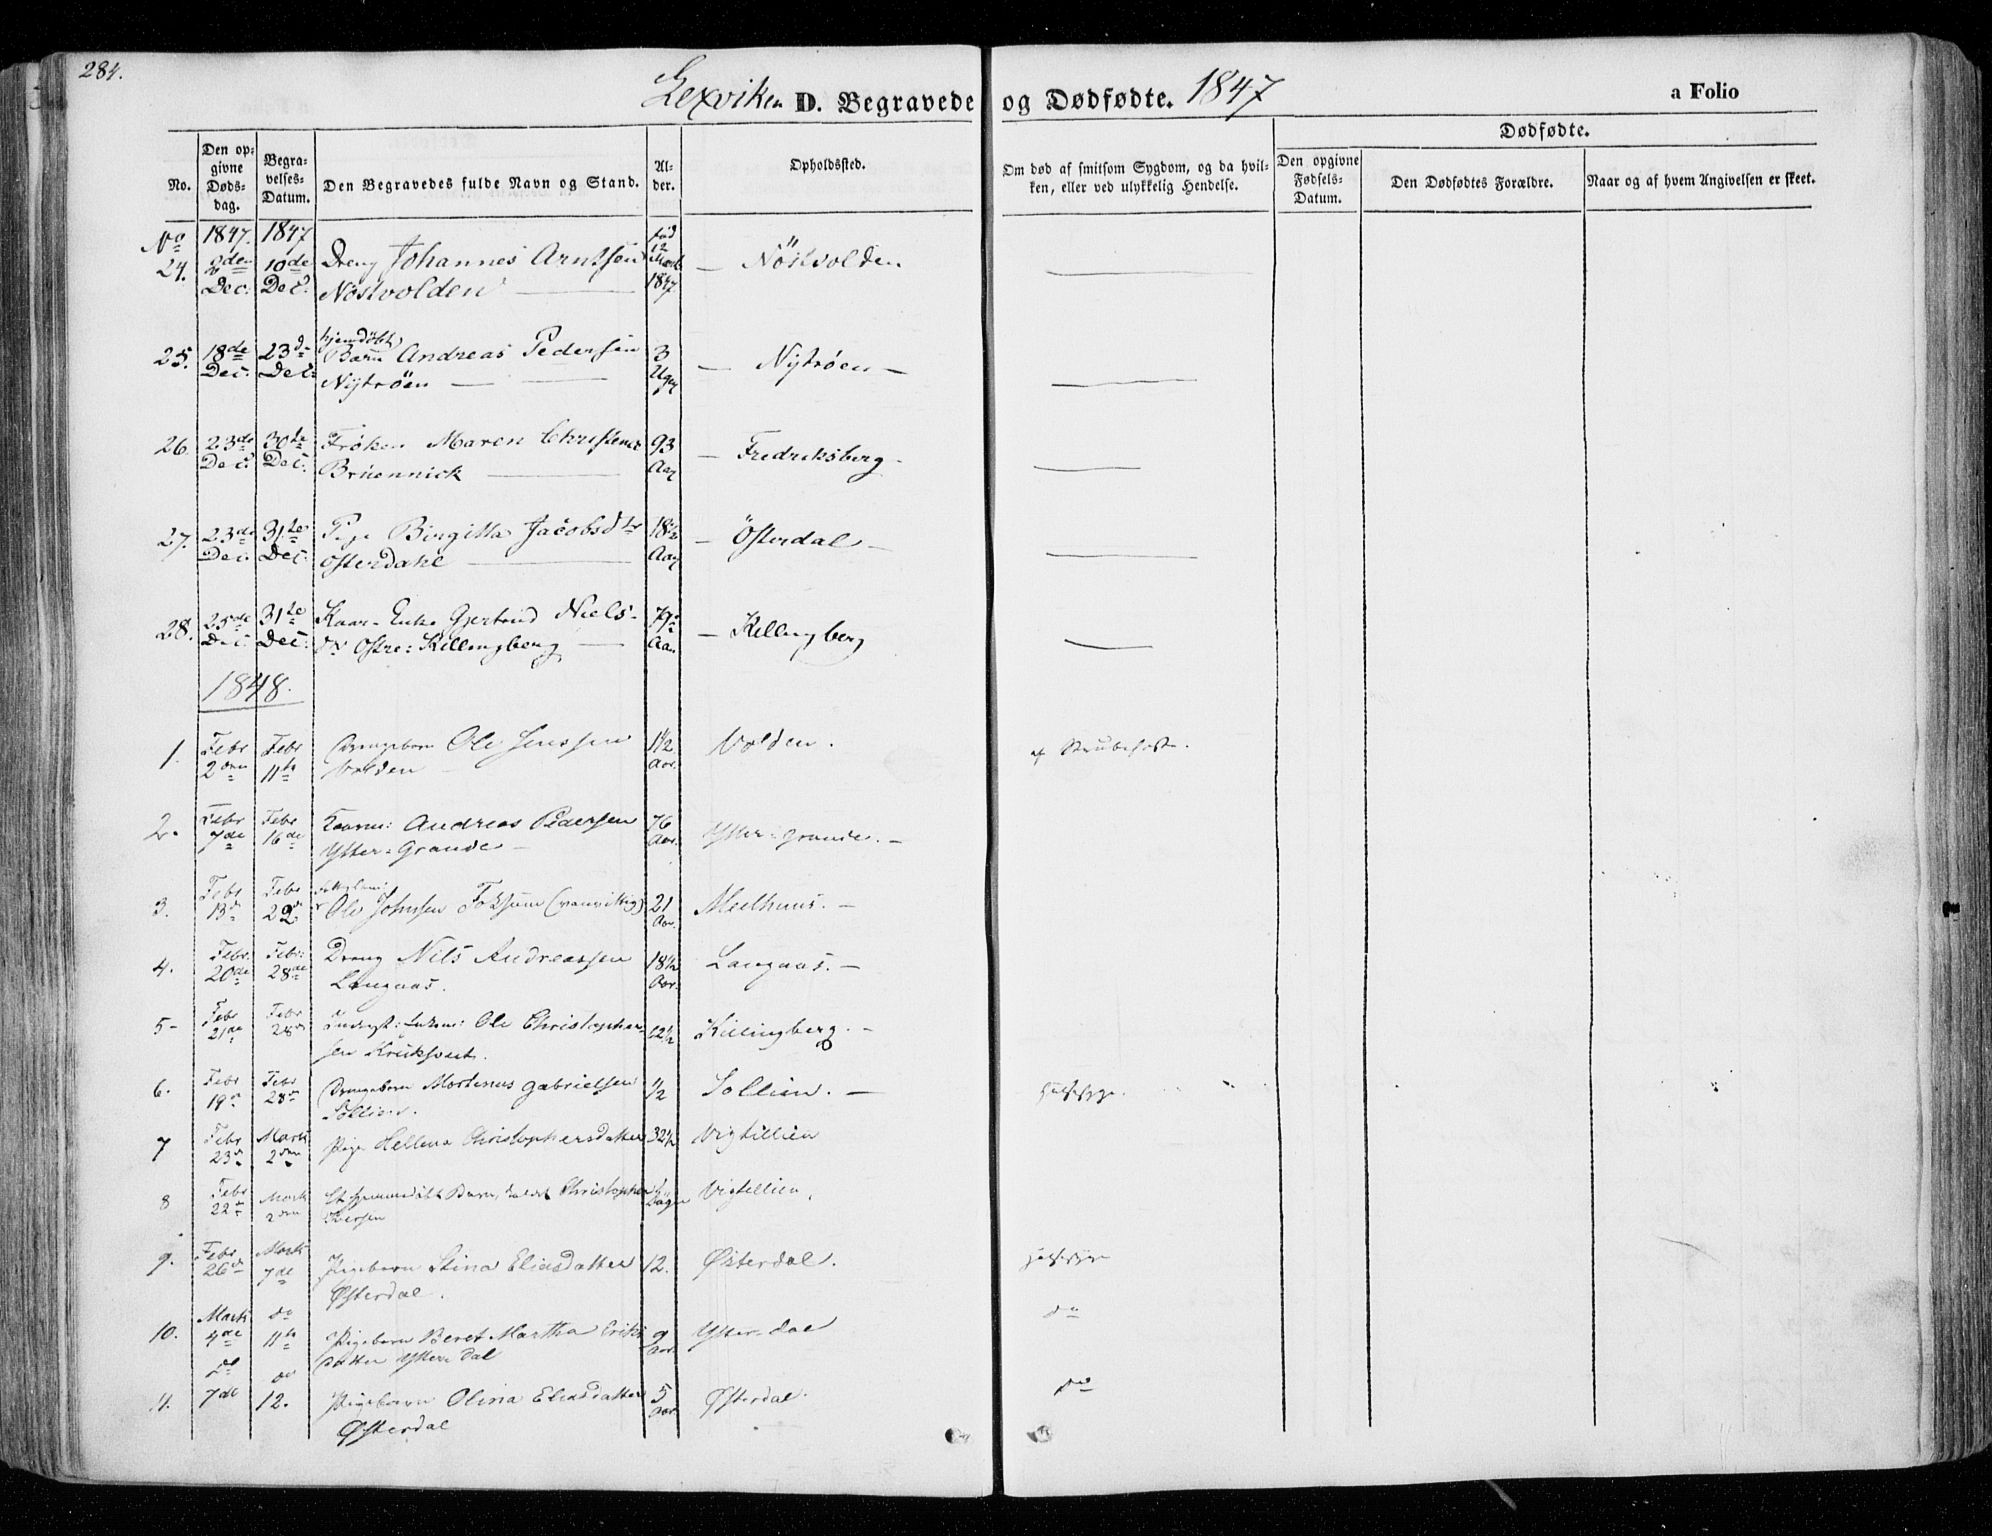 284.
Lexviken D. Begravede og Dødfødte. 1847
a Folio
No.
Den opgivne Dødsdag.
Begravelses-Datum.
Den Begravedes fulde Navn og Stand.
Alder.
Opholdssted.
Om død af smitsom Sygdom, og da hvilken, eller ved ulykkelig Hendelse.
Dødfødte.
Den opgivne Fødsels-Datum.
Den Dødfødtes Forældre.
Naar og af hvem Angivelsen er skeet.
No 1847. 1847 fød
24. 2de 10de Dreng Johannes Arntsen 12 Marts — Nöstvolden
Dec: Dec. Nöstvolden 1847
hjemdöbt
25. 18de 23d Barn Andreas Pedersen 3 — Nytröen —
Dec: Dec: Nytröen — Uger
26. 23de 30te Frøken Maren Christence 93 — Fredriksberg —
Dec. Dec. Brüennick Aar
27. 23de 31te Pige Birgitta Jacobsdtr 18½ — Österdal —
Dec. Dec. Österdahl Aar
28. 25de 31te Kaar-Enke Gjertrud Niels- 79 — Killingberg
Dec. Dec: dtr Östre: Killingberg — Aar
1848.
1. Febr Febr Drengebarn Ole Jenssen 1½ Volden. af Strubehoste.
2den 11te Volden Aar.
2. Febr Febr Kaarm: Andreas Pedersen 76 Ytter-Grande. —
7de 16de Ytter-Grande — Aar.
3. Febr Febr 21 Meelhuus. —
13de 22 Ole Johnsen Foksum (vanvittig) Aar.
4. Febr. Febr: Dreng Nils Andreassen 18½ Langaas. —
20de 28de Langaas. Aar.
5- Febr Febr Ole Christopher- Killingberg. —
21de 28de sen Krüksvet.
6. Febr Febr Drengebarn Mortenus Gabrielsen ½ Sollien. —
19de 28de Sollien.
7 Febr Marts Pige Hellena Christophersdatter 32½ Vigtillien
23de 2den
8 Febr Marts Et hjemmedöbt Barn, kaldet Christopher Dage Vigtillien
22de 2den Iversen
9. Febr Marts Pigebarn Stina Eliasdatter 12. Østerdal.
26de 7de Østerdal.
Marts do do
10. 4de 11te Pigebarn Beret Martha Eriks 9 Ytter-dal
datter Ytter dal Aar.
do do
11. 7de 12. Pigebarn Olina Eliasdatter 5 Østerdal. do
Østerdal Aar